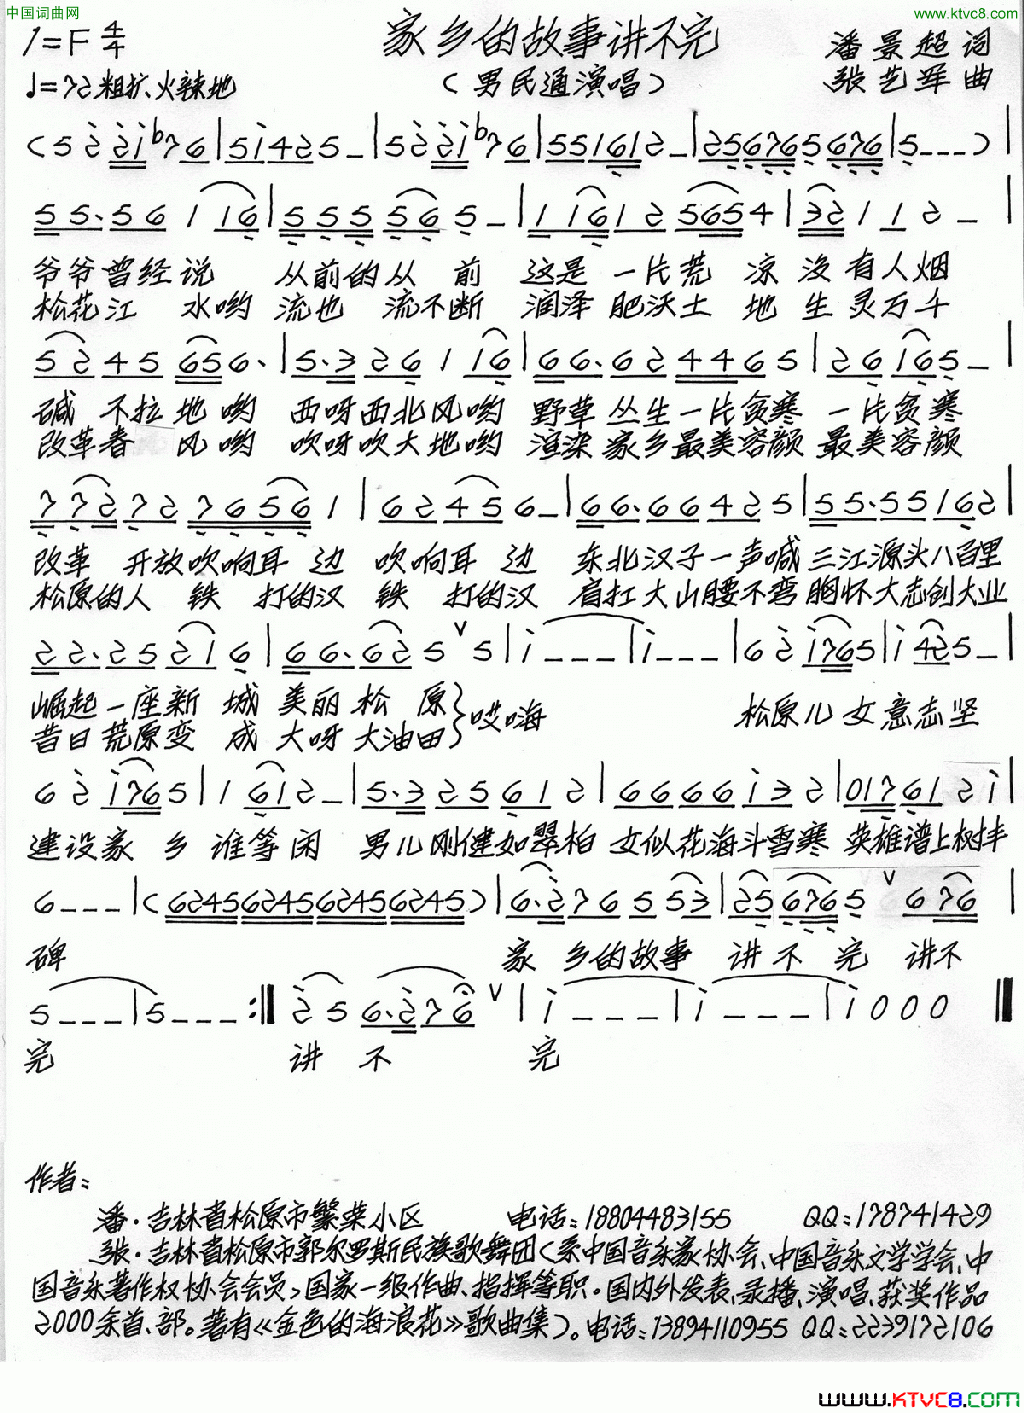 中国词曲网
www.ktvc8.com
1=F 4/4
家乡的故事讲不完
潘景超 词
♩=72 粗犷、火辣地
（男民通演唱）
张艺军 曲
(5 2 2 1 b7 6 | 5 1 4 2 5 – | 5 2 2 1 b7 6 | 5 5 1 6 1 2 – | 2 5 6 7 6 5 6 7 6 | 5 – – –)
5 5. 5 6 1 1 6 | 5 5 5 5 6 5 – | 1 1 6 1 2 5 6 5 4 | 3 2 1 1 2 – |
爷爷曾经说 从前的从 前 这是 一片荒 凉 没有人烟
松花江 水哟 流也 流不断 润泽 肥沃土 地 生灵万千
5 2 4 5 6 5 6. | 5. 3 2 6 1 1 6 | 6 6. 6 2 4 4 6 5 | 2 6 1 6 5 – |
碱 不拉地哟 西呀西北风哟 野草丛生一片贫寒 一片贫寒
改革春 风哟 吹呀吹大地哟 渲染家乡最美容颜 最美容颜
7 7 2 7 2 7 6 5 6 1 | 6 2 4 5 6 – | 6 6. 6 6 4 2 5 | 5 5. 5 5 1 6 2 |
改革 开放吹响耳 边 吹响耳 边 东北汉子一声喊 三江源头八百里
松原的人 铁 打的汉 铁 打的汉 肩扛大山腰不弯 胸怀大志创大业
2 2. 2 5 2 1 6 | 6 6. 6 2 5 ∨ 5 | 1 – – – | 1 – – – | 6 2 1 7 6 5 | 1 4 2 5 – |
崛起一座新 城 美丽松 原 哎嗨 松原儿女意志坚
昔日荒原变 成 大呀大油田
6 2 1 7 6 5 | 1 6 1 2 – | 5. 3 2 5 6 1 2 | 6 6 6 6 1 3 2 | 0 1 7 6 1 2 1 |
建设家 乡 谁等闲 男儿刚健如翠柏 女似花海斗雪寒 英雄谱上树丰
6 – – – | (6245 6245 6245 6245) | 6. 2 7 6 5 5 3 | 2 5 6 7 6 5 ∨ 6 7 6 |
碑 家 乡的故事 讲不 完 讲不
5 – – – | 5 – – – :‖ 2 5 6. 2 7 6 ∨ | 1 – – – | 1 – – – | 1 0 0 0 ‖
完 讲 不 完
作者：
潘·吉林省松原市繁荣小区 电话：18804483155 QQ：178741429
张·吉林省松原市郭尔罗斯民族歌舞团（系中国音乐家协会、中国音乐文学学会、中
国音乐著作权协会会员）国家一级作曲、指挥等职。国内外发表、录播、演唱、获奖作品
2000余首、部。著有《金色的海浪花》歌曲集）。电话：13894110955 QQ：2239172106
www.KTVC8.com